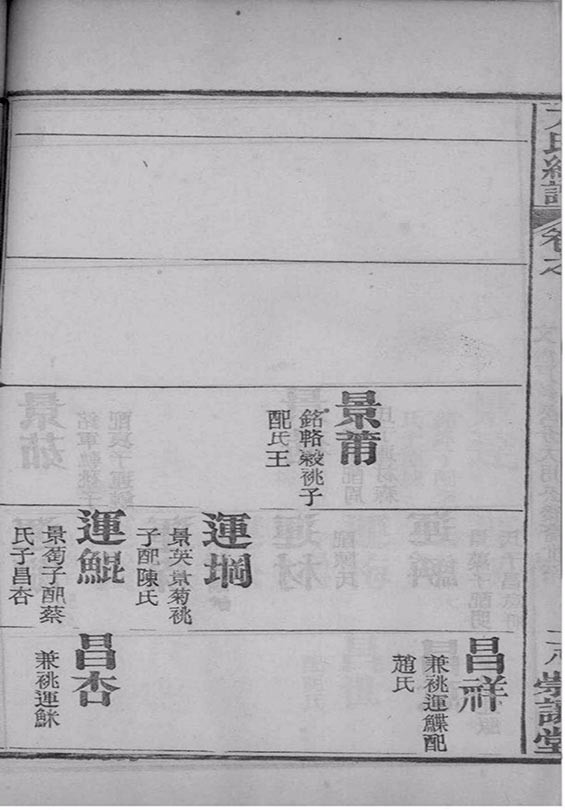 氏統譜
卷之
崇讓堂
景莆
銘輅毅祧子
配氏王
運堈
景英景菊祧
子配陳氏
運鯤
景萄子配蔡
氏子昌杏
昌祥
兼祧運鰈配
趙氏
昌杏
兼祧運鮴